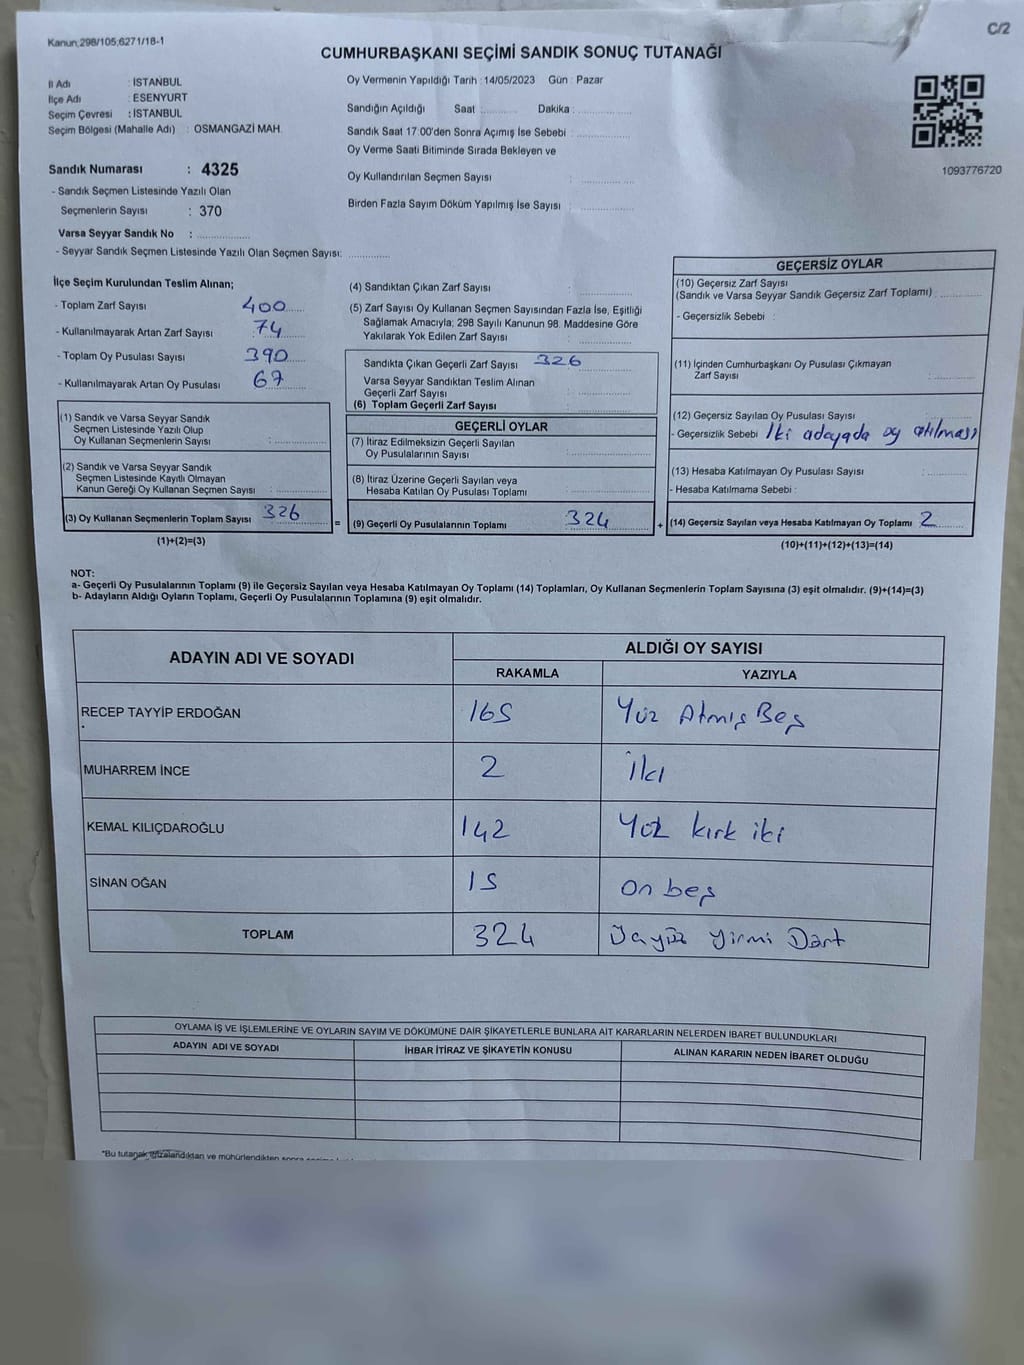 Kanun;298/105;6271/18-1
C/2
CUMHURBAŞKANI SEÇİMİ SANDIK SONUÇ TUTANAĞI
İl Adı : İSTANBUL
İlçe Adı : ESENYURT
Seçim Çevresi : İSTANBUL
Seçim Bölgesi (Mahalle Adı) : OSMANGAZİ MAH.
Sandık Numarası : 4325
- Sandık Seçmen Listesinde Yazılı Olan
Seçmenlerin Sayısı : 370
Varsa Seyyar Sandık No :
- Seyyar Sandık Seçmen Listesinde Yazılı Olan Seçmen Sayısı:
Oy Vermenin Yapıldığı Tarih : 14/05/2023 Gün : Pazar
Sandığın Açıldığı Saat : Dakika :
Sandık Saat 17:00'den Sonra Açımış İse Sebebi :
Oy Verme Saati Bitiminde Sırada Bekleyen ve
Oy Kullandırılan Seçmen Sayısı :
Birden Fazla Sayım Döküm Yapılmış İse Sayısı :
1093776720
İlçe Seçim Kurulundan Teslim Alınan;
- Toplam Zarf Sayısı 400
- Kullanılmayarak Artan Zarf Sayısı 74
- Toplam Oy Pusulası Sayısı 390
- Kullanılmayarak Artan Oy Pusulası 67
(1) Sandık ve Varsa Seyyar Sandık
Seçmen Listesinde Yazılı Olup
Oy Kullanan Seçmenlerin Sayısı :
(2) Sandık ve Varsa Seyyar Sandık
Seçmen Listesinde Kayıtlı Olmayan
Kanun Gereği Oy Kullanan Seçmen Sayısı :
(3) Oy Kullanan Seçmenlerin Toplam Sayısı 326
(1)+(2)=(3)
=
(4) Sandıktan Çıkan Zarf Sayısı :
(5) Zarf Sayısı Oy Kullanan Seçmen Sayısından Fazla İse, Eşitliği
Sağlamak Amacıyla; 298 Sayılı Kanunun 98. Maddesine Göre
Yakılarak Yok Edilen Zarf Sayısı :
Sandıkta Çıkan Geçerli Zarf Sayısı 326
Varsa Seyyar Sandıktan Teslim Alınan
Geçerli Zarf Sayısı :
(6) Toplam Geçerli Zarf Sayısı :
GEÇERLİ OYLAR
(7) İtiraz Edilmeksizin Geçerli Sayılan
Oy Pusulalarının Sayısı :
(8) İtiraz Üzerine Geçerli Sayılan veya
Hesaba Katılan Oy Pusulası Toplamı :
(9) Geçerli Oy Pusulalarının Toplamı 324
+
GEÇERSİZ OYLAR
(10) Geçersiz Zarf Sayısı
(Sandık ve Varsa Seyyar Sandık Geçersiz Zarf Toplamı) :
- Geçersizlik Sebebi :
(11) İçinden Cumhurbaşkanı Oy Pusulası Çıkmayan
Zarf Sayısı :
(12) Geçersiz Sayılan Oy Pusulası Sayısı :
- Geçersizlik Sebebi İki adayada oy atılması
(13) Hesaba Katılmayan Oy Pusulası Sayısı :
- Hesaba Katılmama Sebebi :
(14) Geçersiz Sayılan veya Hesaba Katılmayan Oy Toplamı 2
(10)+(11)+(12)+(13)=(14)
NOT:
a- Geçerli Oy Pusulalarının Toplamı (9) ile Geçersiz Sayılan veya Hesaba Katılmayan Oy Toplamı (14) Toplamları, Oy Kullanan Seçmenlerin Toplam Sayısına (3) eşit olmalıdır. (9)+(14)=(3)
b- Adayların Aldığı Oyların Toplamı, Geçerli Oy Pusulalarının Toplamına (9) eşit olmalıdır.
ADAYIN ADI VE SOYADI ALDIĞI OY SAYISI
RAKAMLA YAZIYLA
RECEP TAYYİP ERDOĞAN 165 Yüz Atmış Beş
MUHARREM İNCE 2 İki
KEMAL KILIÇDAROĞLU 142 Yüz kırk iki
SİNAN OĞAN 15 on beş
TOPLAM 324 Üçyüz yirmi Dört
OYLAMA İŞ VE İŞLEMLERİNE VE OYLARIN SAYIM VE DÖKÜMÜNE DAİR ŞİKAYETLERLE BUNLARA AİT KARARLARIN NELERDEN İBARET BULUNDUKLARI
ADAYIN ADI VE SOYADI İHBAR İTİRAZ VE ŞİKAYETİN KONUSU ALINAN KARARIN NEDEN İBARET OLDUĞU
*Bu tutanak imzalandıktan ve mühürlendikten sonra